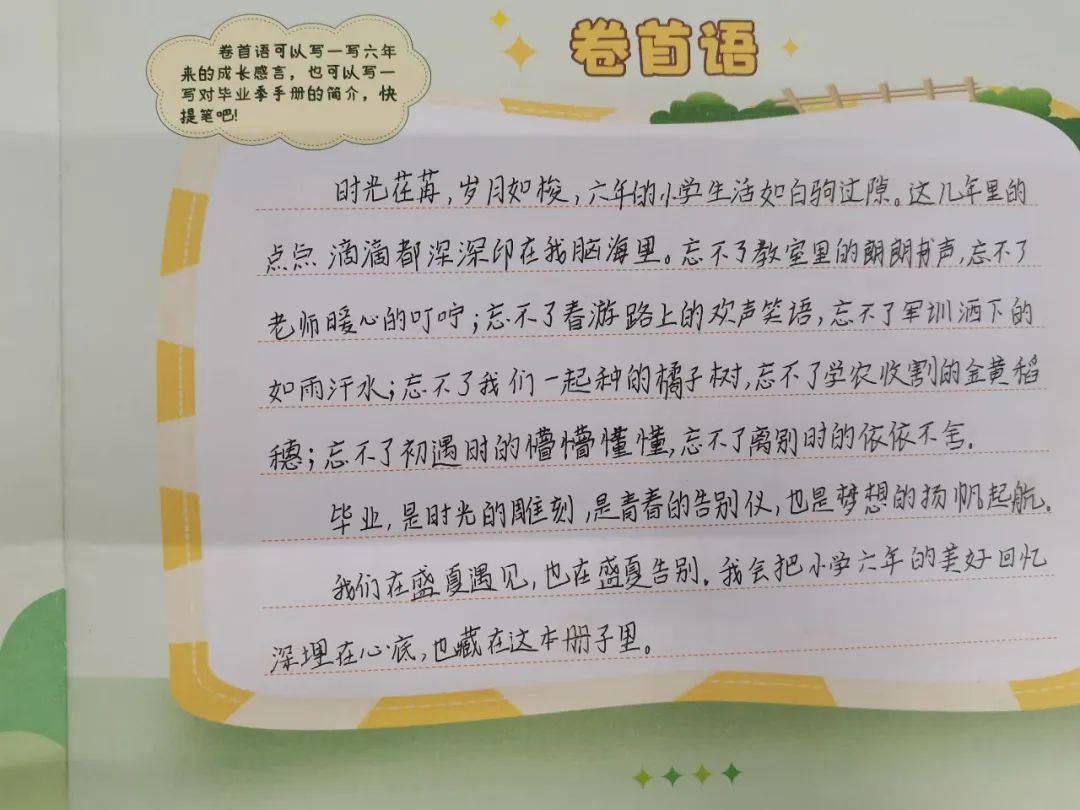 卷首语
卷首语可以写一写六年
来的成长感言，也可以写一
写对毕业季手册的简介，快
提笔吧！
时光荏苒，岁月如梭，六年的小学生活如白驹过隙。这几年里的
点点滴滴都深深印在我脑海里。忘不了教室里的朗朗书声，忘不了
老师暖心的叮咛；忘不了春游路上的欢声笑语，忘不了军训洒下的
如雨汗水；忘不了我们一起种的橘子树，忘不了学农收割的金黄稻
穗；忘不了初遇时的懵懵懂懂，忘不了离别时的依依不舍。
毕业，是时光的雕刻，是青春的告别仪，也是梦想的扬帆起航。
我们在盛夏遇见，也在盛夏告别。我会把小学六年的美好回忆
深埋在心底，也藏在这本册子里。